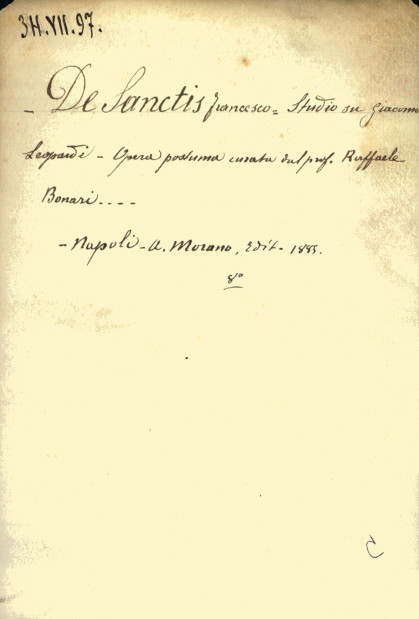 3H.VII.97.
- De Sanctis Francesco = Studio su Giacomo
Leopardi - Opera postuma curata dal prof. Raffaele
Bonari....
- Napoli - A. Morano, Edit - 1885.
8°